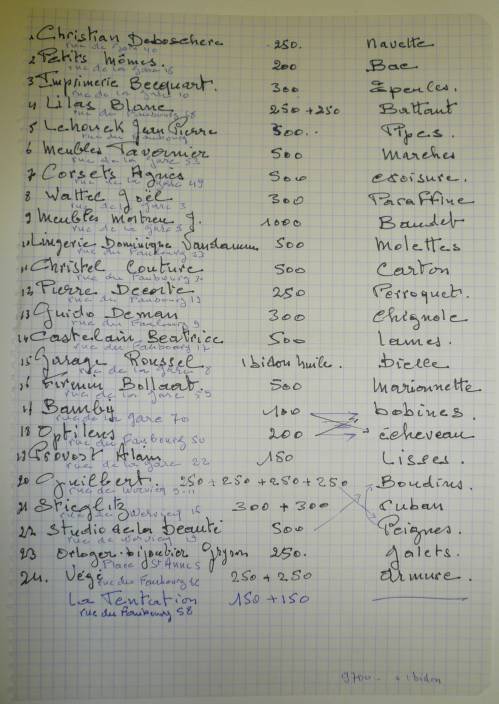 1 Christian Deboschere 250. navette
rue de la gare 40
2 Petits Mômes. 200 Bac
rue de la gare 18
3 Imprimerie Becquart. 300 Eponces.
rue de la gare 10
4 Lilas Blanc 250 + 250 Battant
rue du Faubourg 48
5 Lehouck Jean Pierre 300.. Pipes.
rue du Faubourg
6 Meubles Tavernier 500 Marches
rue de la gare 53
7 Corsets Agnès 500 croisure.
rue de la gare 49
8 Wattel Joël 300 Paraffine
rue de la gare 3
9 Meubles J. 1000 Baudet
rue de la gare 5
10 Lingerie Dominique Vandamme 500 Molettes
rue du Faubourg 23
11 Christel Couture 500 Carton
rue du Faubourg
12 Pierre Decorte 250 Perroquet.
rue du Faubourg 13
13 Guido Deman 300 Chignole
rue du Faubourg 9
14 Castelain Béatrice 500 Lames.
rue du Faubourg 17
15 Garage Roussel 1 bidon huile. Dielle
rue de la gare 8
16 Firmin Bollaert. 500 Marionnette
rue de la gare 55
17 Bamby 100 bobines.
rue de la gare 70
18 Optilens 200 écheveau
rue du Faubourg 50
19 Provost Alain 150 Lisses.
rue de la gare 22
20 Guilbert. 250 + 250 + 250 + 250 Boudins.
rue de Wervicq 9-11
21 Stieglitz 300 + 300 Cuban
rue de Wervicq 16
22 Studio de la Beauté 500 Peignes.
rue de Wervicq 19
23 Orloger-bijoutier Gryson 250. galets.
Place St Anne 5
24. Végé 250 + 250 armure.
rue du Faubourg 46
La Tentation 150 + 150
rue du Faubourg 58
9700 + 1 bidon